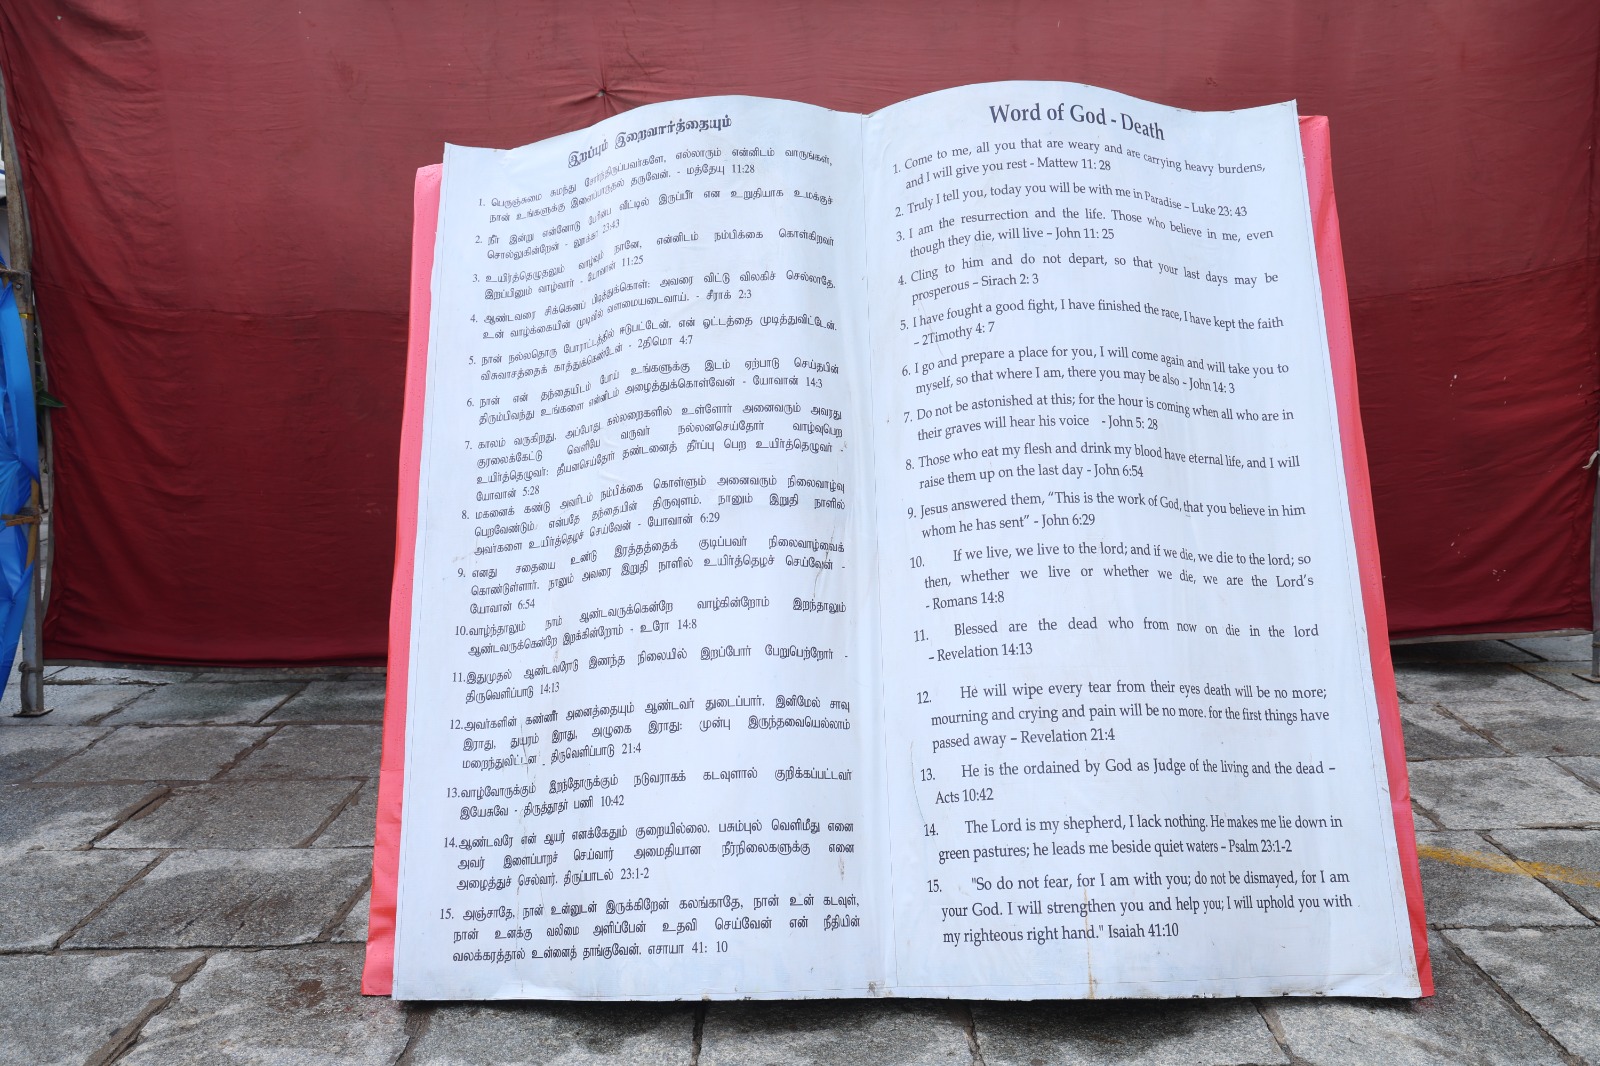 இறப்பும் இறைவார்த்தையும்
1. பெருஞ்சுமை சுமந்து சோர்ந்திருப்பவர்களே, எல்லாரும் என்னிடம் வாருங்கள்,
நான் உங்களுக்கு இளைப்பாறுதல் தருவேன். - மத்தேயு 11:28
2. நீர் இன்று என்னோடு பேரின்ப வீட்டில் இருப்பீர் என உறுதியாக உமக்குச்
சொல்லுகின்றேன் - லூக்கா 23:43
3. உயிர்த்தெழுதலும் வாழ்வும் நானே, என்னிடம் நம்பிக்கை கொள்கிறவர்
இறப்பினும் வாழ்வார் - யோவான் 11:25
4. ஆண்டவரை சிக்கெனப் பிடித்துக்கொள்: அவரை விட்டு விலகிச் செல்லாதே,
உன் வாழ்க்கையின் முடிவில் வளமையடைவாய். - சீராக் 2:3
5. நான் நல்லதொரு போராட்டத்தில் ஈடுபட்டேன். என் ஓட்டத்தை முடித்துவிட்டேன்.
விசுவாசத்தைக் காத்துக்கொண்டேன் - 2திமொ 4:7
6. நான் என் தந்தையிடம் போய் உங்களுக்கு இடம் ஏற்பாடு செய்தபின்
திரும்பிவந்து உங்களை என்னிடம் அழைத்துக்கொள்வேன் - யோவான் 14:3
7. காலம் வருகிறது. அப்போது கல்லறைகளில் உள்ளோர் அனைவரும் அவரது
குரலைக்கேட்டு வெளியே வருவர் நல்லனசெய்தோர் வாழ்வுபெற
உயிர்த்தெழுவர்: தீயனசெய்தோர் தண்டனைத் தீர்ப்பு பெற உயிர்த்தெழுவர் -
யோவான் 5:28
8. மகனைக் கண்டு அவரிடம் நம்பிக்கை கொள்ளும் அனைவரும் நிலைவாழ்வு
பெறவேண்டும் என்பதே தந்தையின் திருவுளம். நானும் இறுதி நாளில்
அவர்களை உயிர்த்தெழச் செய்வேன் - யோவான் 6:29
9. எனது சதையை உண்டு இரத்தத்தைக் குடிப்பவர் நிலைவாழ்வைக்
கொண்டுள்ளார். நானும் அவரை இறுதி நாளில் உயிர்த்தெழச் செய்வேன் -
யோவான் 6:54
10.வாழ்ந்தாலும் நாம் ஆண்டவருக்கென்றே வாழ்கின்றோம் இறந்தாலும்
ஆண்டவருக்கென்றே இறக்கின்றோம் - உரோ 14:8
11.இதுமுதல் ஆண்டவரோடு இணந்த நிலையில் இறப்போர் பேறுபெற்றோர் -
திருவெளிப்பாடு 14:13
12.அவர்களின் கண்ணீர் அனைத்தையும் ஆண்டவர் துடைப்பார். இனிமேல் சாவு
இராது, துயரம் இராது, அழுகை இராது: முன்பு இருந்தவையெல்லாம்
மறைந்துவிட்டன . திருவெளிப்பாடு 21:4
13.வாழ்வோருக்கும் இறந்தோருக்கும் நடுவராகக் கடவுளால் குறிக்கப்பட்டவர்
இயேசுவே - திருத்தூதர் பணி 10:42
14.ஆண்டவரே என் ஆயர் எனக்கேதும் குறையில்லை. பசும்புல் வெளிமீது எனை
அவர் இளைப்பாறச் செய்வார் அமைதியான நீர்நிலைகளுக்கு எனை
அழைத்துச் செல்வார். திருப்பாடல் 23:1-2
15. அஞ்சாதே, நான் உன்னுடன் இருக்கிறேன் கலங்காதே, நான் உன் கடவுள்,
நான் உனக்கு வலிமை அளிப்பேன் உதவி செய்வேன் என் நீதியின்
வலக்கரத்தால் உன்னைத் தாங்குவேன். எசாயா 41: 10
Word of God - Death
1. Come to me, all you that are weary and are carrying heavy burdens,
and I will give you rest - Mattew 11: 28
2. Truly I tell you, today you will be with me in Paradise – Luke 23: 43
3. I am the resurrection and the life. Those who believe in me, even
though they die, will live – John 11: 25
4. Cling to him and do not depart, so that your last days may be
prosperous – Sirach 2: 3
5. I have fought a good fight, I have finished the race, I have kept the faith
– 2Timothy 4: 7
6. I go and prepare a place for you, I will come again and will take you to
myself, so that where I am, there you may be also - John 14: 3
7. Do not be astonished at this; for the hour is coming when all who are in
their graves will hear his voice - John 5: 28
8. Those who eat my flesh and drink my blood have eternal life, and I will
raise them up on the last day - John 6:54
9. Jesus answered them, “This is the work of God, that you believe in him
whom he has sent” - John 6:29
10. If we live, we live to the lord; and if we die, we die to the lord; so
then, whether we live or whether we die, we are the Lord's
- Romans 14:8
11. Blessed are the dead who from now on die in the lord
– Revelation 14:13
12. He will wipe every tear from their eyes death will be no more;
mourning and crying and pain will be no more. for the first things have
passed away – Revelation 21:4
13. He is the ordained by God as Judge of the living and the dead –
Acts 10:42
14. The Lord is my shepherd, I lack nothing. He makes me lie down in
green pastures; he leads me beside quiet waters – Psalm 23:1-2
15. "So do not fear, for I am with you; do not be dismayed, for I am
your God. I will strengthen you and help you; I will uphold you with
my righteous right hand." Isaiah 41:10